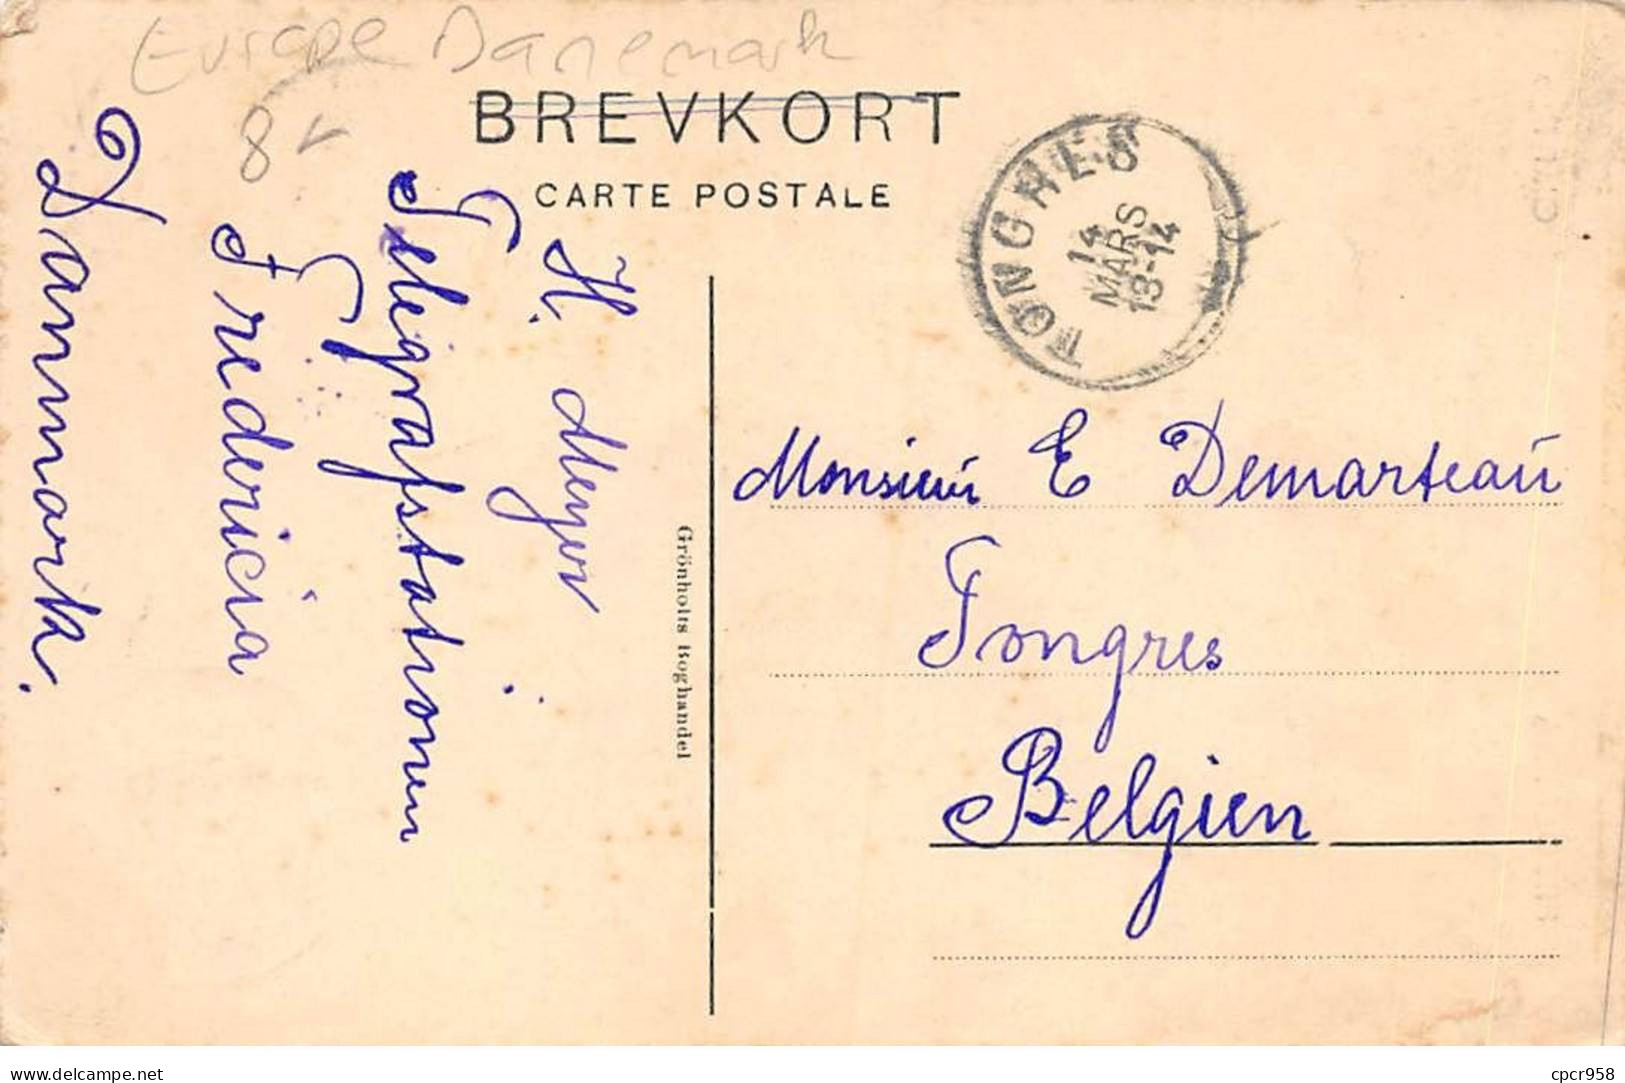 Europe Danemark
8
BREVKORT
CARTE POSTALE
TONGRES
14
MARS
13-14
H. Meyer
Telegrafstationen
Fredericia
Danmark.
Grönholts Boghandel
Monsieur E Demarteau
Tongres
Belgien
www.delcampe.net
cpcr958